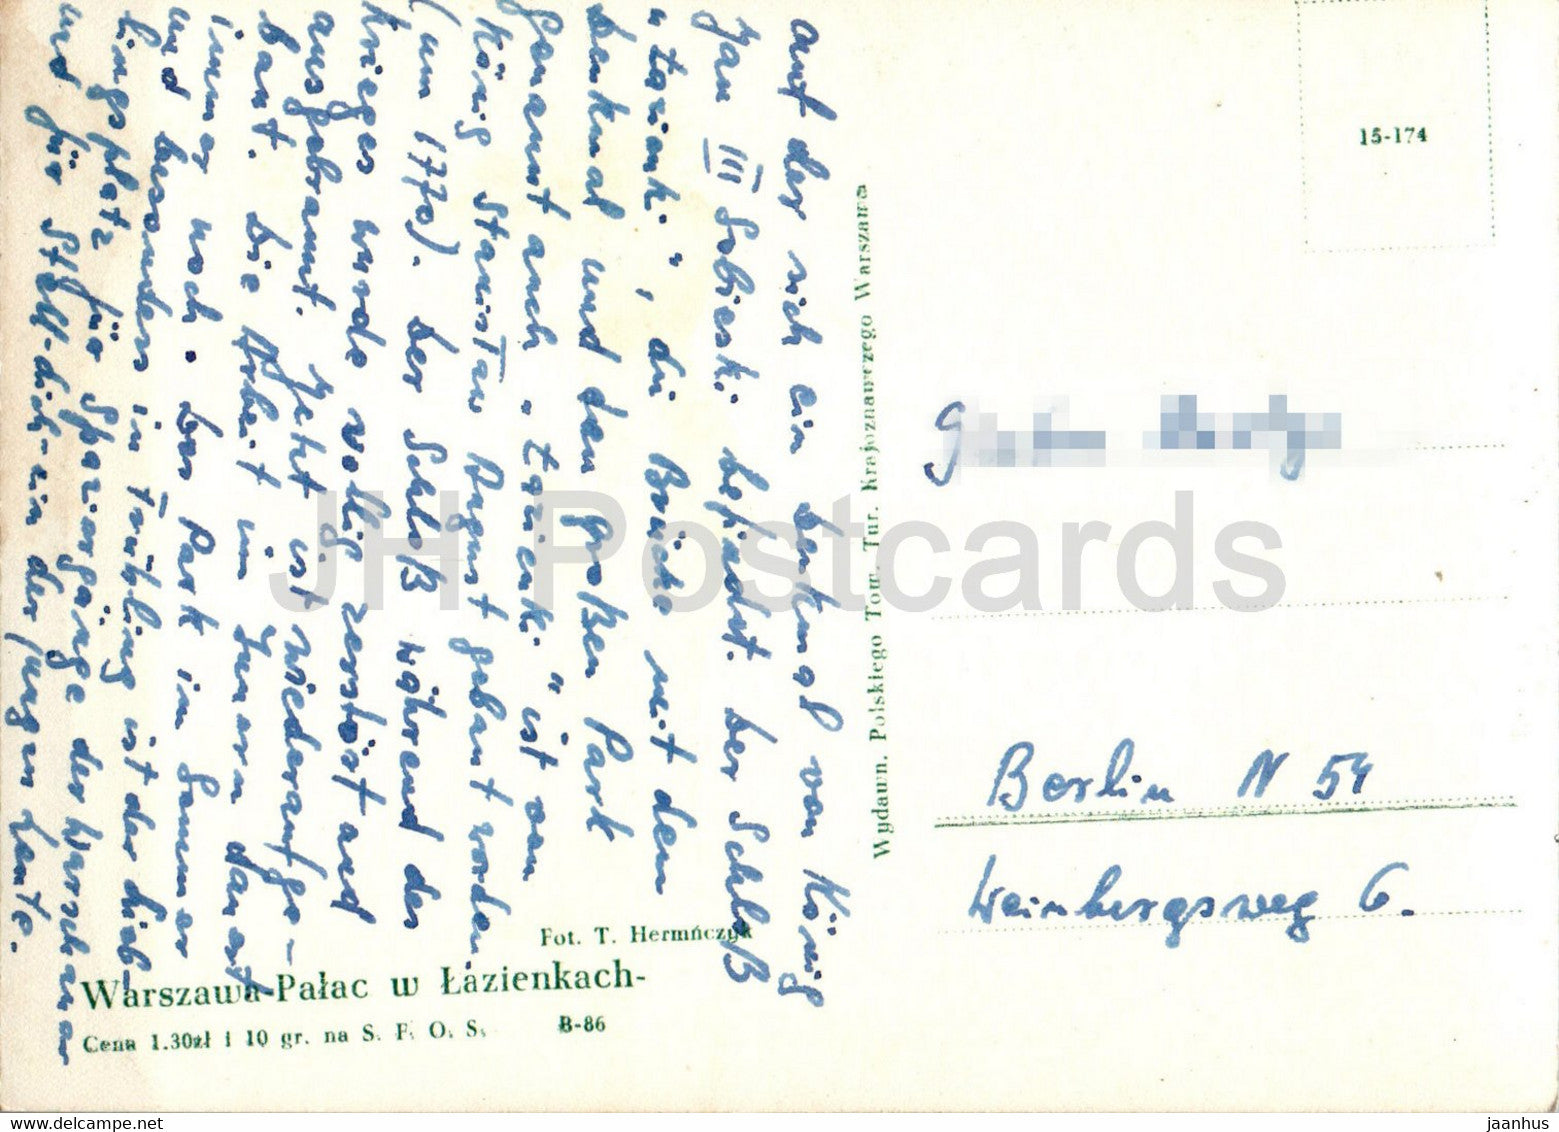 auf der sich ein Denkmal von König
Jan III Sobieski befindet. Der Schloß
"Łazienki", die Brücke mit dem
Denkmal und den großen Park
genannt auch "Łazienki" ist von
König Stanisław August gebaut worden
(um 1770). Der Schloß während des
Krieges wurde vollig zerstöst und
ausgebrannt. Jetzt ist wiederaufge-
baut. Die Arbeit im Innern dauert
immer noch. Der Park im Sommer
und besonders in Frühling ist der Lieb-
lingsplatz für Spaziergänge der Warschauer
und für Stell-dich-ein der jungen Leute.
Fot. T. Hermńczyk
Warszawa-Pałac w Łazienkach-
Cena 1.30zł i 10 gr. na S. F. O. S. B-86
Wydawn. Polskiego Tow. Tur. Krajoznawczego Warszawa
15-174
Berlin N 54
Weinbergsweg 6.
JH Postcards
www.delcampe.net
jaanhus